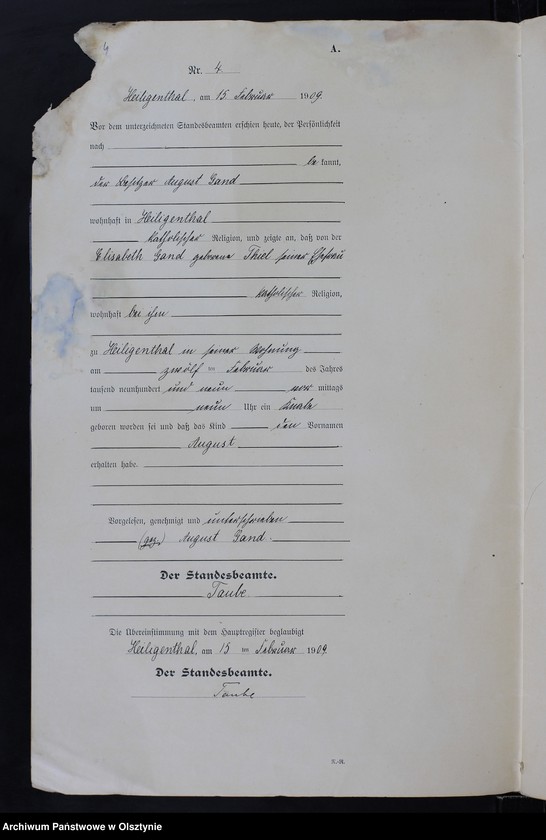 4
A.
Nr. 4
Heiligenthal, am 15 Februar 1909
Vor dem unterzeichneten Standesbeamten erschien heute, der Persönlichkeit
nach
be kannt,
der Besitzer August Gand
wohnhaft in Heiligenthal
katholischer Religion, und zeigte an, daß von der
Elisabeth Gand geborene Thiel seiner Ehefrau
katholischer Religion,
wohnhaft bei ihm
zu Heiligenthal in seiner Wohnung
am zwölf ten Februar des Jahres
tausend neunhundert und neun vor mittags
um neun Uhr ein Knabe
geboren worden sei und daß das Kind den Vornamen
August
erhalten habe.
Vorgelesen, genehmigt und unterschrieben
(gez.) August Gand.
Der Standesbeamte.
Taube
Die Übereinstimmung mit dem Hauptregister beglaubigt
Heiligenthal, am 15 ten Februar 1909.
Der Standesbeamte.
Taube
Archiwum Państwowe w Olsztynie